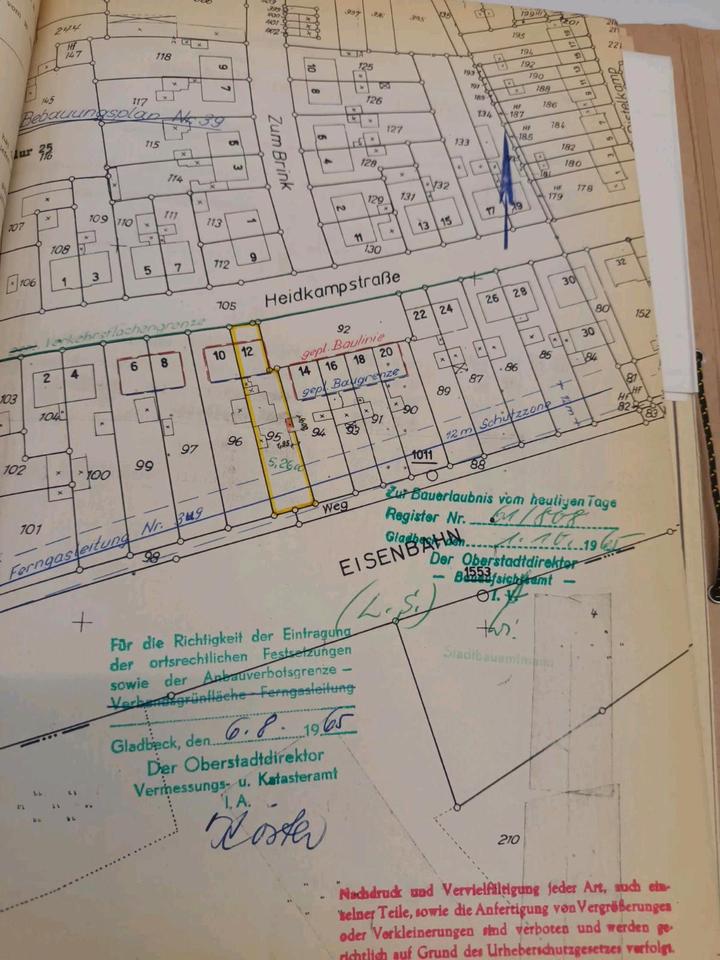 244
Hf
147
118
9
7
145
117
Bebauungsplan Nr. 39
Flur 25
115
5
3
114
107
109
110
111
113
1
108
1
3
5
7
112
9
106
105
Zum Brink
10
8
125
126
127
6
4
128
129
2
11
130
131
132
133
13
15
17
19
134
195
194
192
190
188
186
187
184
185
182
180
179
178
193
191
189
201
Heidkampstraße
Verkehrsflächengrenze
92
gepl. Baulinie
gepl. Baugrenze
2
4
6
8
10
12
14
16
18
20
22
24
26
28
30
30
32
152
80
84
85
86
87
89
90
91
93
94
95
96
97
99
100
101
102
103
104
81
Hf
82
Hf
83
12m Schutzzone
12m
5,26a
1011
88
Weg
98
Ferngasleitung Nr. 3u9
EISENBAHN
1553
Zur Bauerlaubnis vom heutigen Tage
Register Nr. 61/808
Gladbeck, den 1.10. 1965
Der Oberstadtdirektor
— Bauaufsichtsamt —
I. V.
(L.S.)
Stadtbauamtmann
Für die Richtigkeit der Eintragung
der ortsrechtlichen Festsetzungen
sowie der Anbauverbotsgrenze —
Verbandsgrünfläche - Ferngasleitung
Gladbeck, den 6.8. 1965
Der Oberstadtdirektor
Vermessungs- u. Katasteramt
I. A.
Köster
210
Nachdruck und Vervielfältigung jeder Art, auch ein-
zelner Teile, sowie die Anfertigung von Vergrößerungen
oder Verkleinerungen sind verboten und werden ge-
richtlich auf Grund des Urheberschutzgesetzes verfolgt.